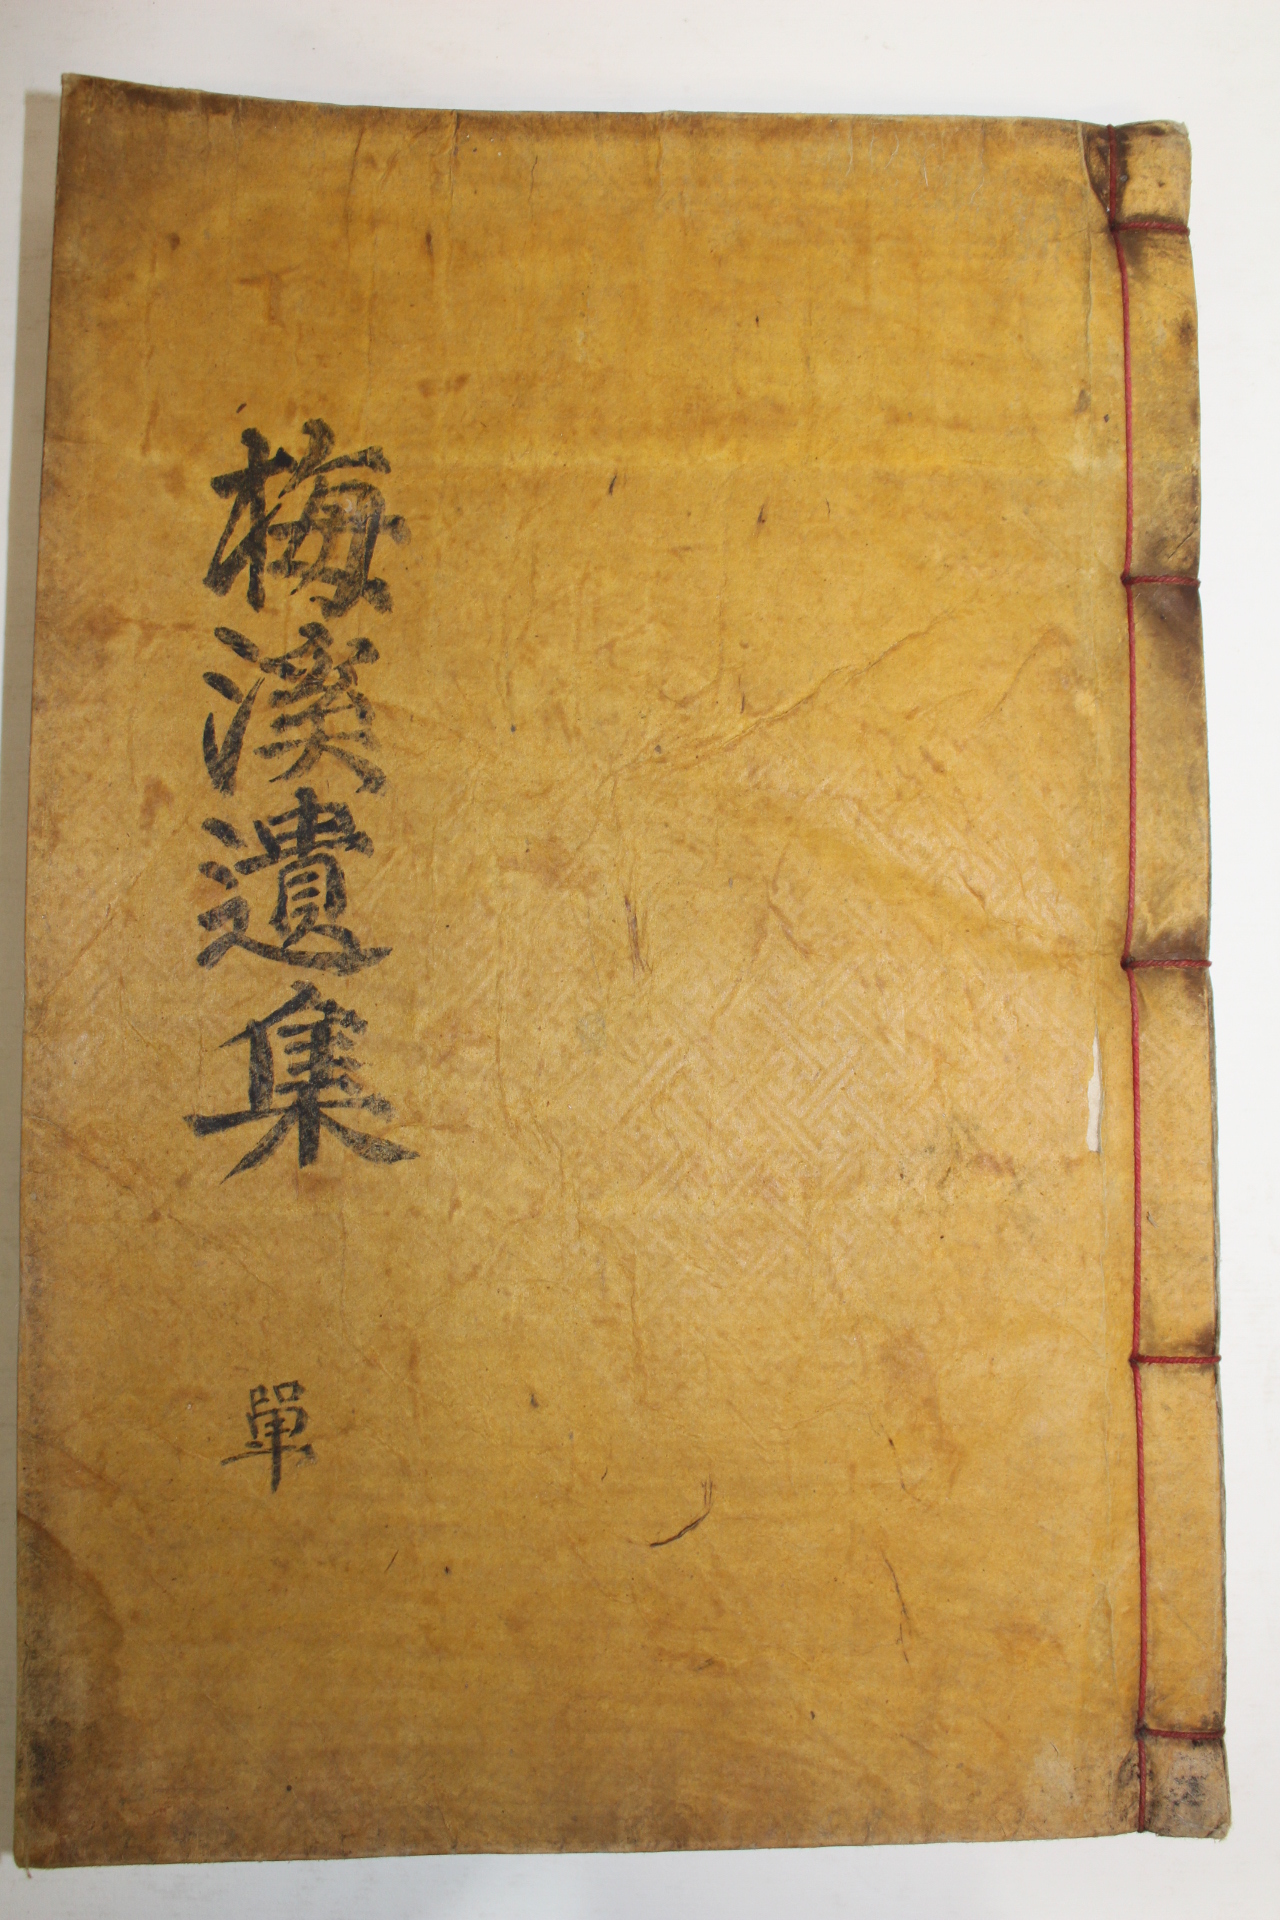 梅溪遺集
單